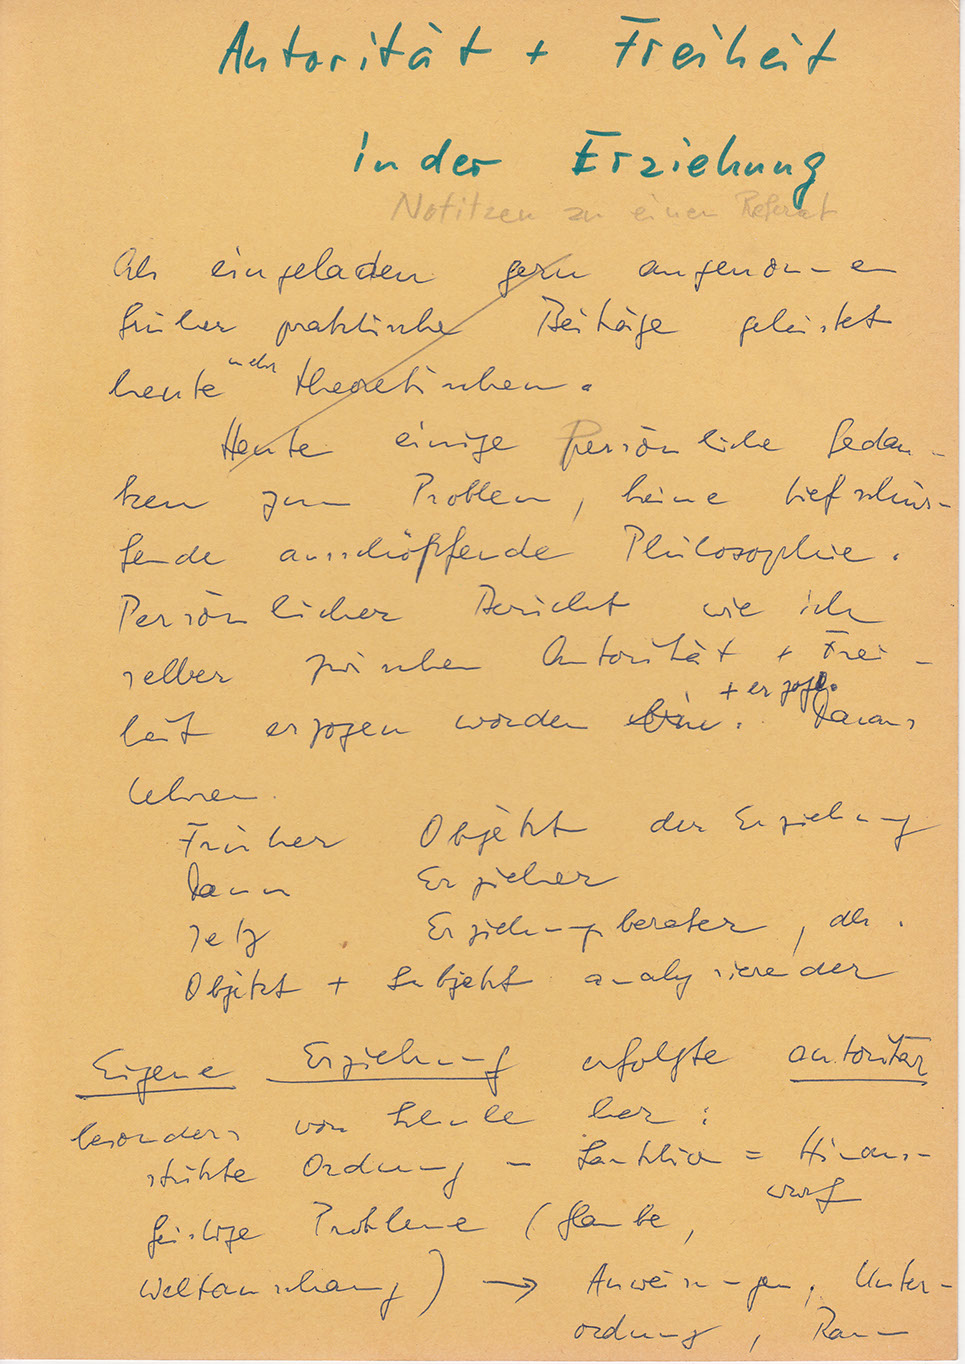 Autorität + Freiheit
in der Erziehung
Notitzen zu einem Referat
Als eingeladen gern angenommen
früher praktische Beiträge geleistet
heute mehr theoretischen.
Heute einige Persönliche Gedan-
ken zum Problem, keine tiefschür-
fende ausschöpfende Philosophie.
Persönlicher Bericht wie ich
selber zwischen Autorität + Frei-
heit erzogen worden bin. + erzog. Daraus
Lehren.
Früher Objekt der Erziehung
Dann Erzieher
Jetz Erziehungsberater, der
Objekt + Subjekt analysierender
Eigene Erziehung erfolgte autoritär
besonders von Schule her:
strikte Ordnung – Sanktion = Hinaus-
wurf
geistige Probleme (Glaube,
Weltanschaung) → Anweisungen, Unter-
ordnung,